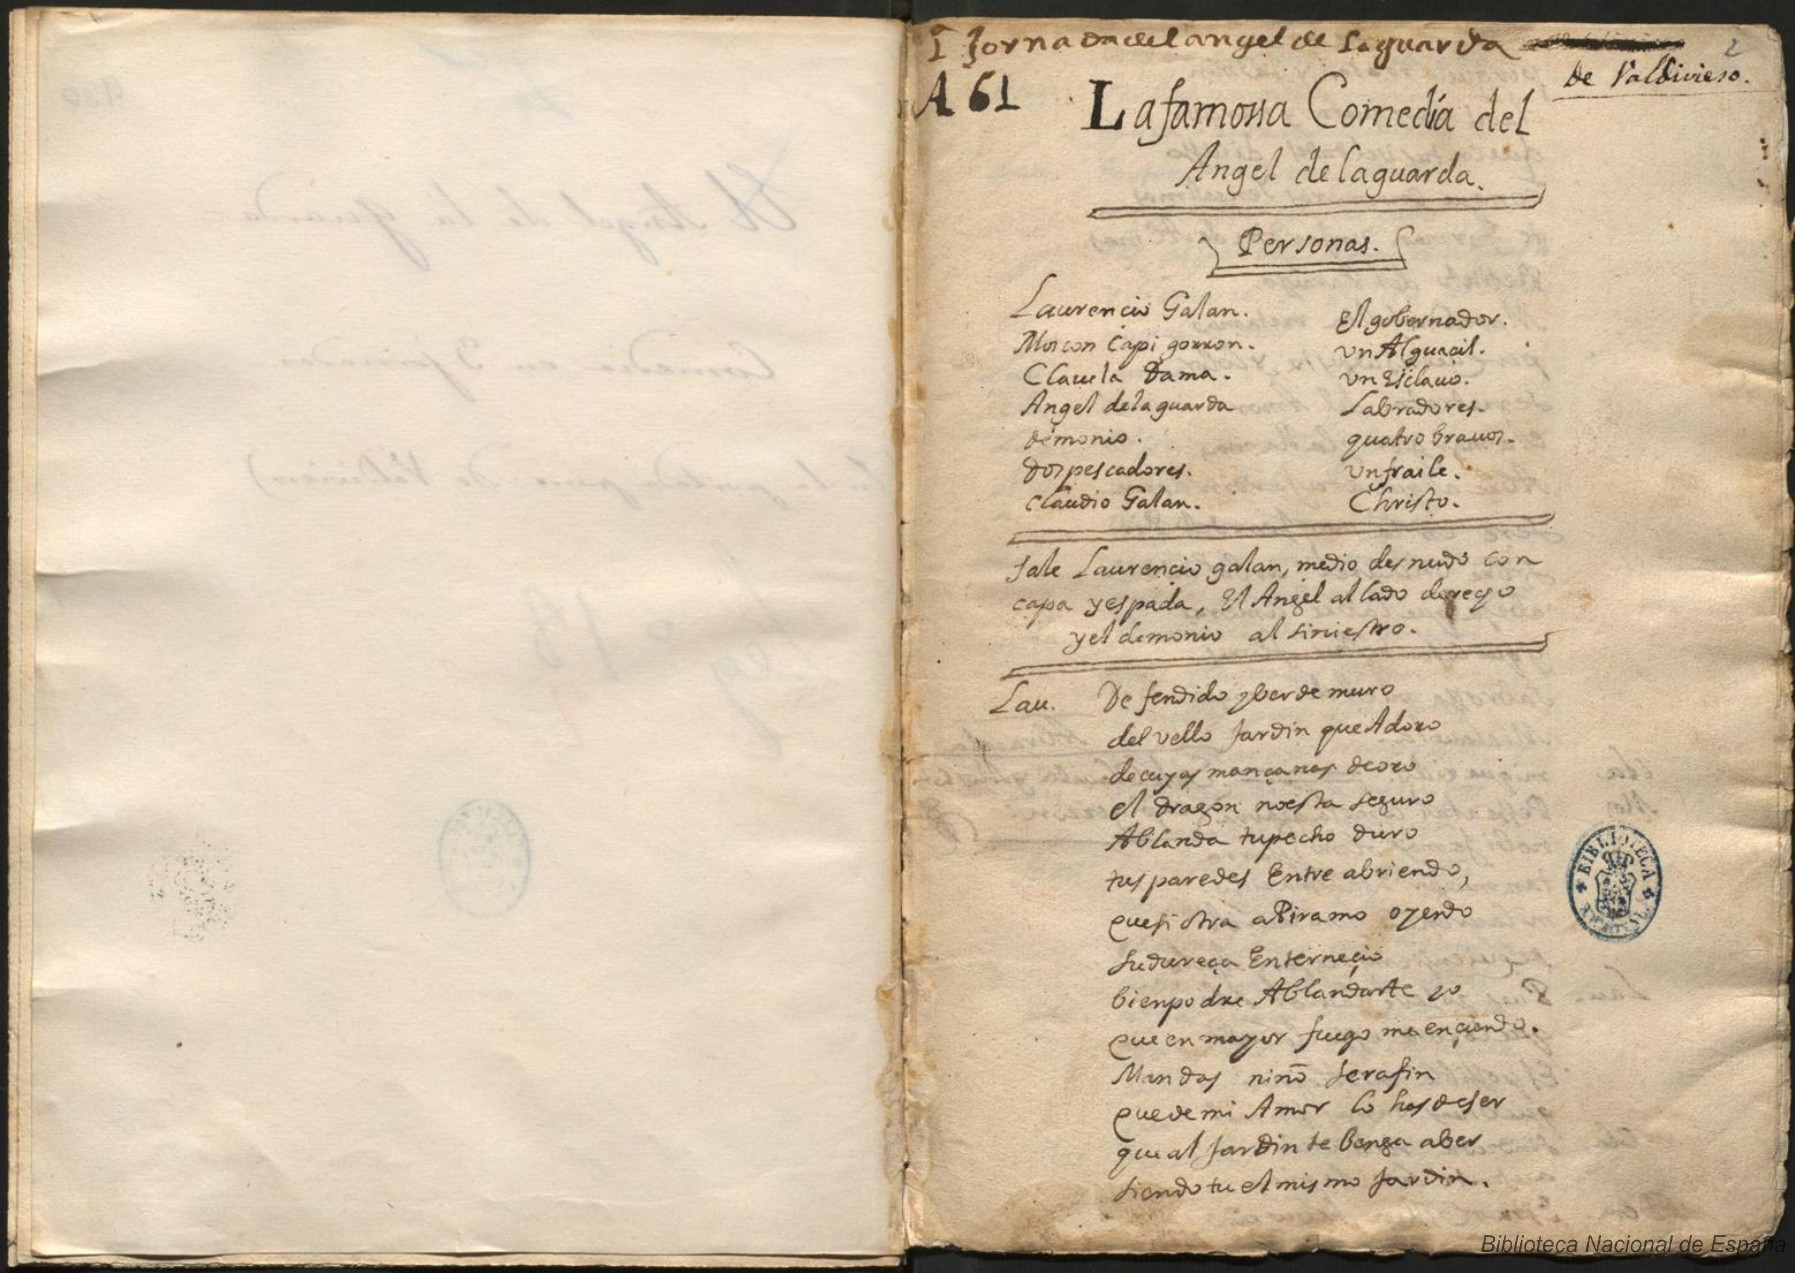 I Jornada del angel de la guarda
2
de Valdivieso.
A 61
La famossa Comedia del
Angel de la guarda.
Personas.
Laurencio Galan.
Moscon Capigorron.
Clauela Dama.
Angel de la guarda
demonio.
Dos pescadores.
Claudio Galan.
El gobernador.
vn Alguacil.
vn Esclauo.
Labradores.
quatro brauos.
vn fraile.
Christo.
Sale Laurencio galan, medio desnudo con
capa y espada, El Angel al lado derecho
y el demonio al siniestro.
Lau. Defendido y berde muro
del vello Jardin que Adoro
de cuyas mançanas de oro
el dragon no esta seguro
Ablanda tu pecho duro
tus paredes Entre abriendo,
que si otra a Piramo oyendo
su dureça Enterneçio
bien podre Ablandarte yo
que en mayor fuego me ençiendo.
Mandas niño serafin
que de mi Amor lo has de ser
que al Jardin te benga a ber
siendo tu el mismo Jardin.
BIBLIOTECA NACIONAL
Biblioteca Nacional de España